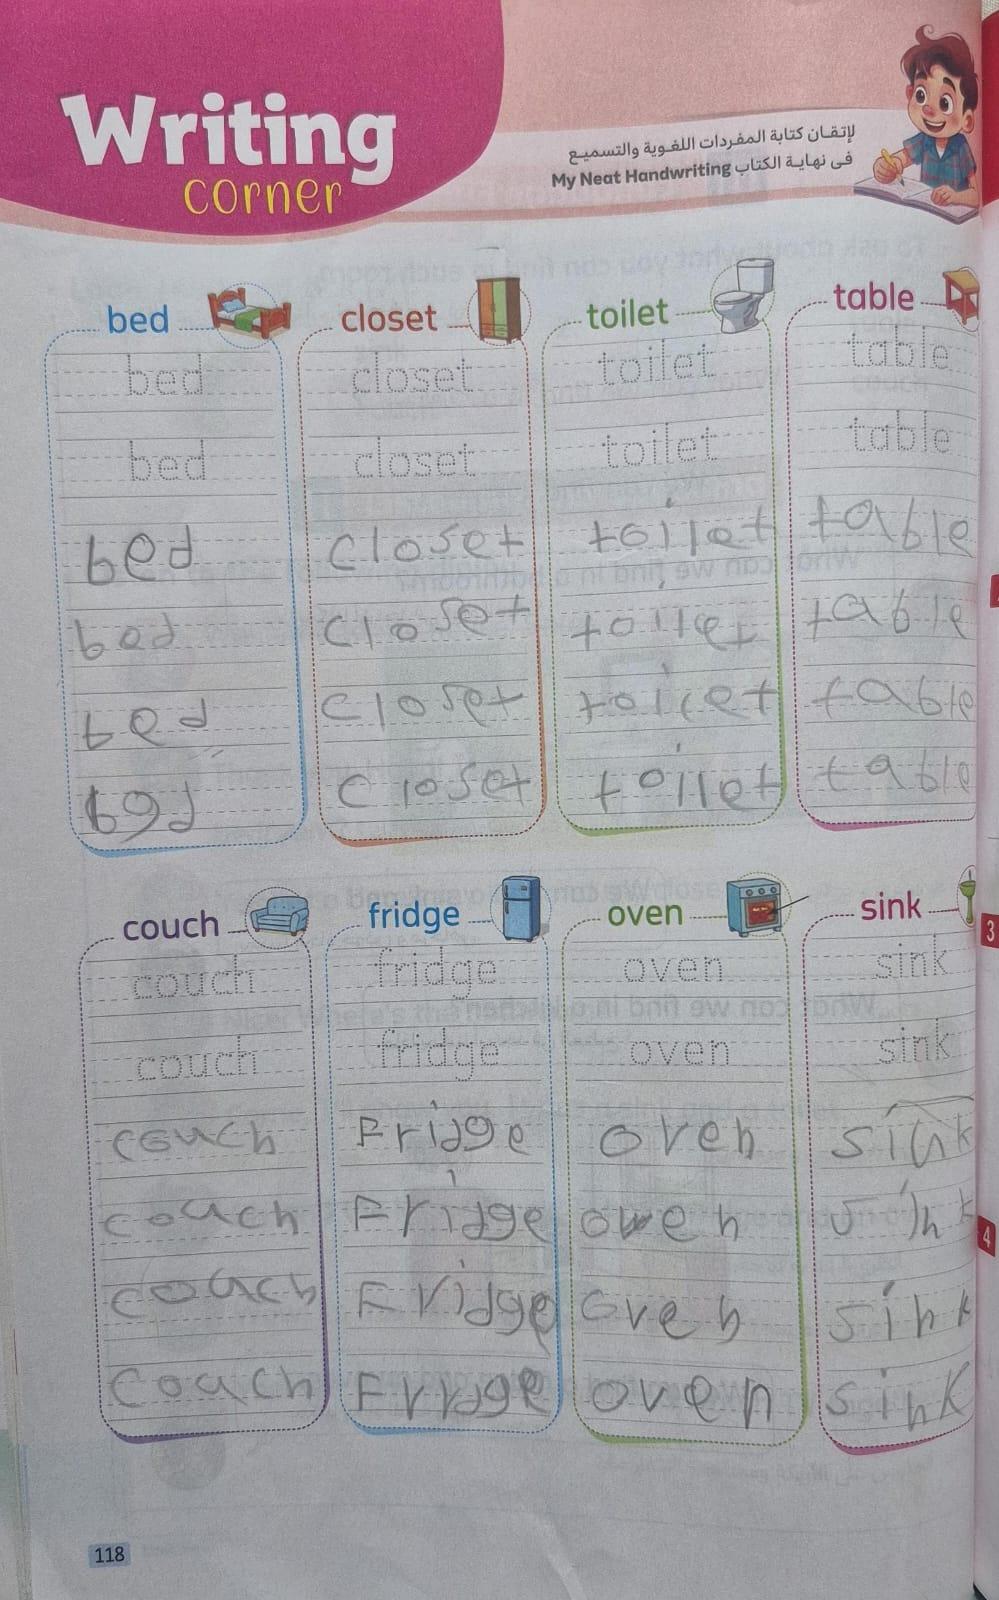 Writing
corner
لإتقان كتابة المفردات اللغوية والتسميع
فى نهاية الكتاب My Neat Handwriting
bed closet toilet table
bed closet toilet table
bed closet toilet table
bed closet toilet table
bed closet toilet table
bed closet toilet table
bed closet toilet table
couch fridge oven sink
couch fridge oven sink
couch fridge oven sink
couch Fridge oven sink
couch Fridge oven sink
couch Fridge oven sink
couch Fridge oven sink
3
4
118